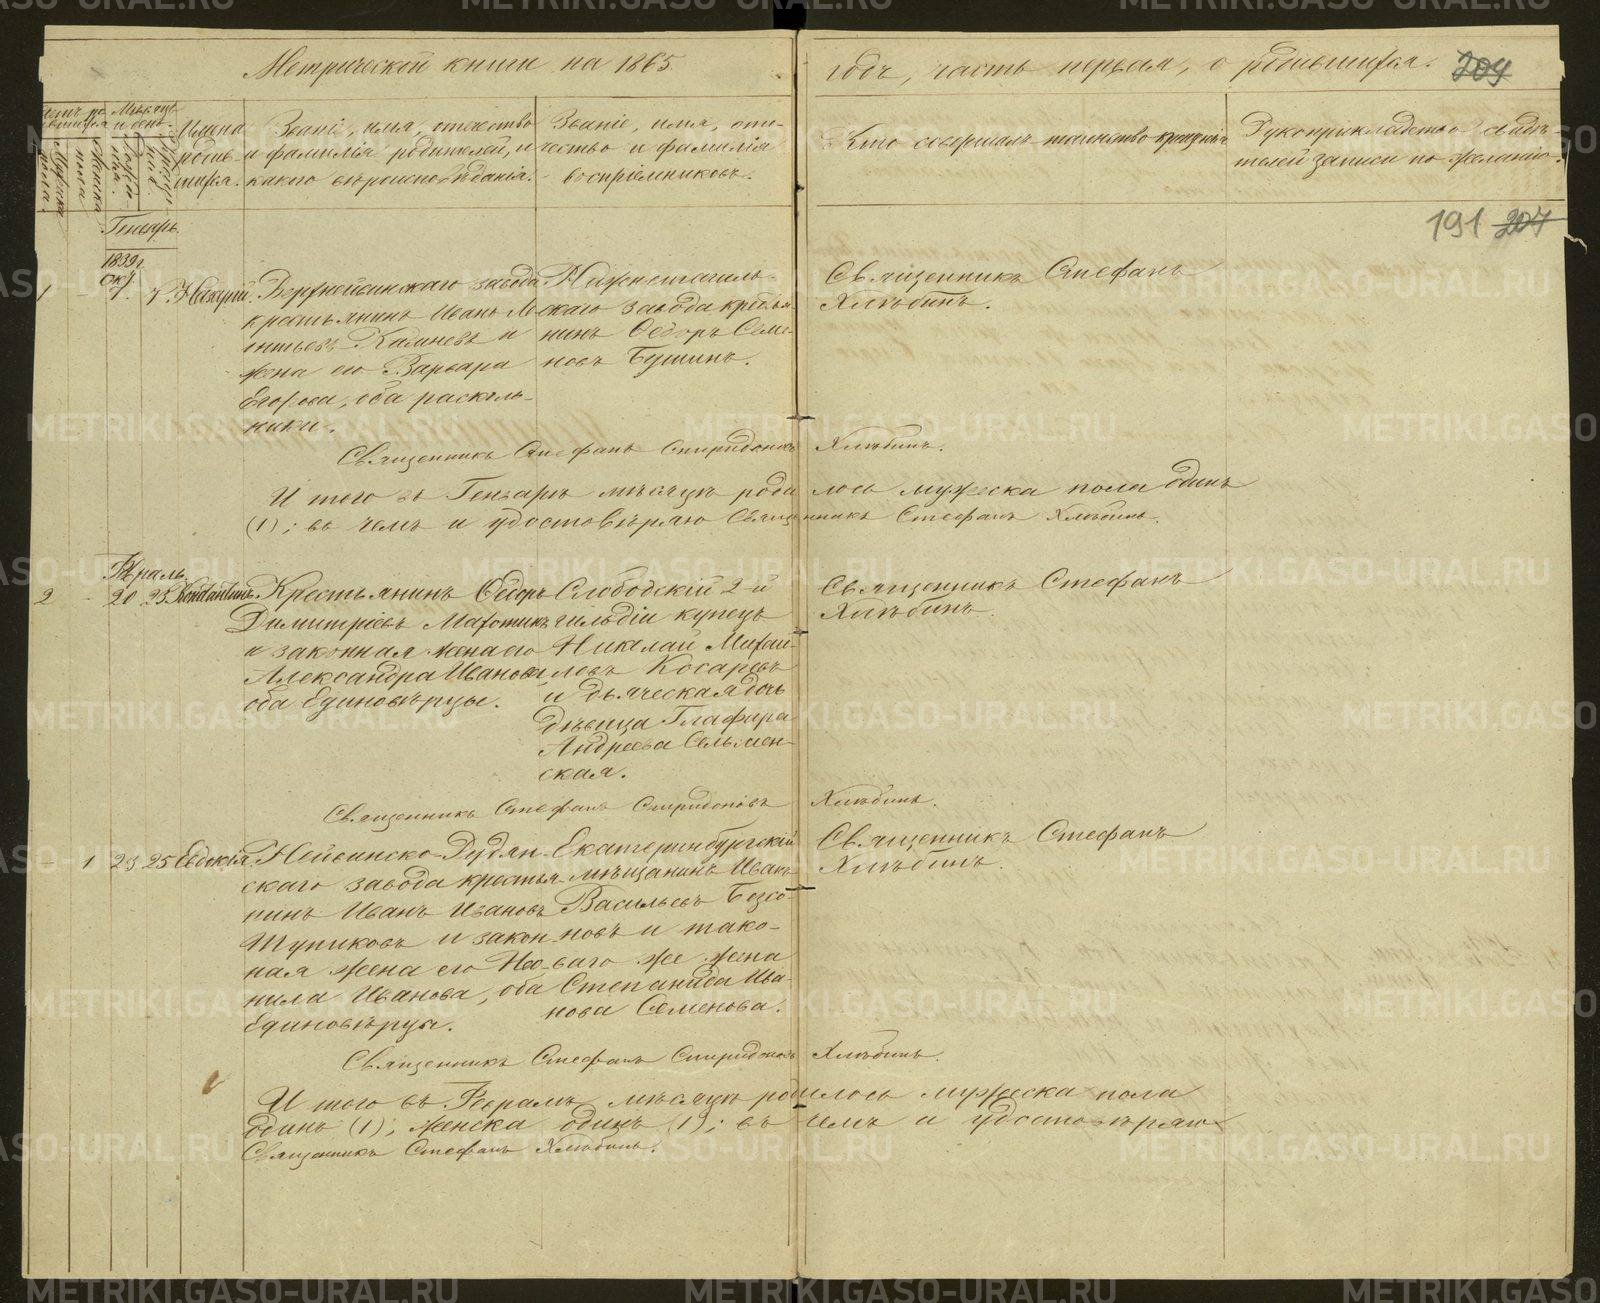 Метрической книги на 1865 годъ, часть первая, о родившихся. 209
Счетъ ро-
дившихся
Мужеска
пола.
Женска
пола
Мѣсяцъ
и день.
Рожде-
нія.
Крещенія
Имена
родив-
шихся.
Званіе, имя, отчество
и фамилія родителей, и
какого вѣроисповѣданія.
Званіе, имя, оте-
чество и фамилія
воспріемниковъ.
Кто совершалъ таинство крещенія
Рукоприкладство свидѣ-
телей записи по желанію.
191 207
Генварь
1839 г.
Окт.
1 - 7.
Верхнейвинскаго завода
крестьянинъ Иванъ Ле-
онтьевъ Камневъ и
жена его Варвара
Егорова, оба расколь-
ники.
Нижнетагиль-
скаго завода крестья-
нинъ Ѳедоръ Семе-
новъ Бушинъ.
Священникъ Стефанъ
Хлѣбинъ.
Священникъ Стефанъ Спиридоновъ Хлѣбинъ.
И того въ Генварѣ мѣсяцѣ родилось мужеска пола одинъ
(1); въ чемъ и удостовѣряю Священникъ Стефанъ Хлѣбинъ.
Февраль.
2 - 20 25 Константинъ.
Крестьянинъ Ѳедоръ
Димитріевъ
и законная жена его
Александра Иванова,
оба Единовѣрцы.
Слободскій 2-й
гильдіи купецъ
Николай Михаи-
ловъ Косаревъ
и дьяческая дочь
дѣвица Глафира
Андреева Сельмен-
ская.
Священникъ Стефанъ
Хлѣбинъ.
Священникъ Стефанъ Спиридоновъ Хлѣбинъ.
- 1 23 25 Евдокія.
Нейвинско-Рудян-
скаго завода крестья-
нинъ Иванъ Ивановъ
Тупиковъ и закон-
ная жена его Нео-
нила Иванова, оба
Единовѣрцы.
Екатеринбургскій
мѣщанинъ Иванъ
Васильевъ Безсо-
новъ и тако-
ваго же жена
Степанида Ива-
нова Семенова.
Священникъ Стефанъ
Хлѣбинъ.
Священникъ Стефанъ Спиридоновъ Хлѣбинъ.
И того въ Февралѣ мѣсяцѣ родилось мужеска пола
одинъ (1), женска одинъ (1); въ чемъ и удостовѣряю
Священникъ Стефанъ Хлѣбинъ.
METRIKI.GASO-URAL.RU